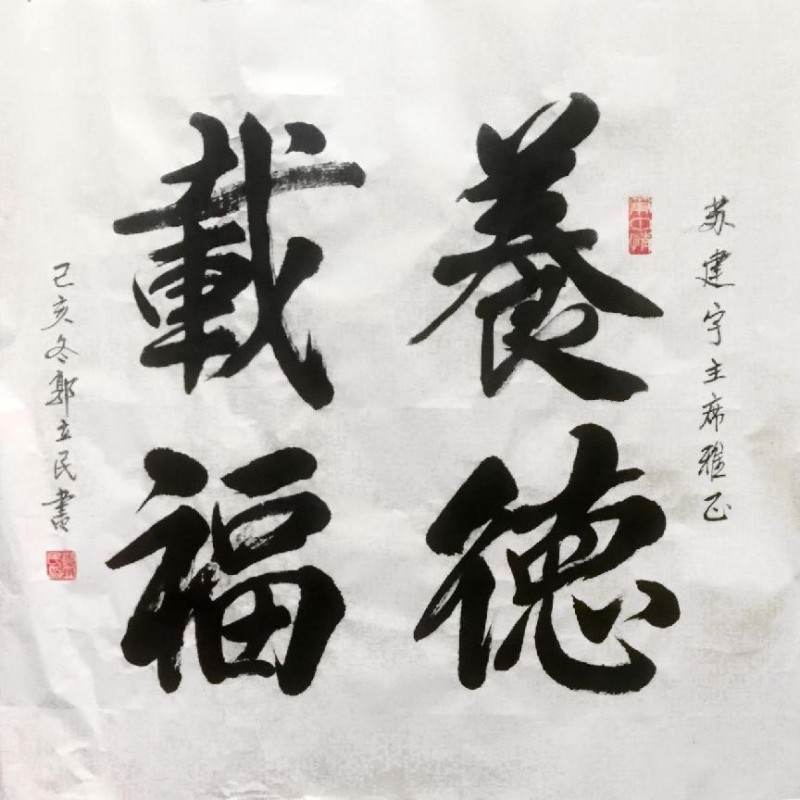 苏建宇主席雅正
養德
載福
己亥冬郭立民書